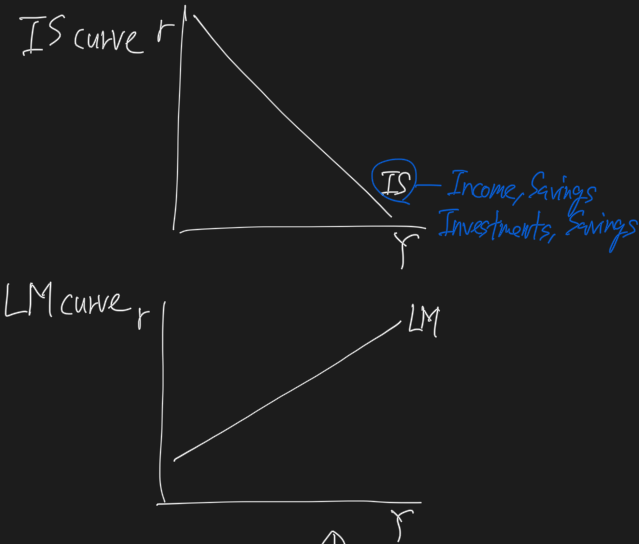 IS curve r
IS — Income, Savings
Investments, Savings
Y
LM curve r
LM
Y